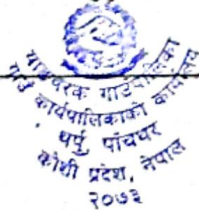 याङवरक गाउँपालिका
गाउँ कार्यपालिकाको कार्यालय
थर्पु पांचथर
कोशी प्रदेश, नेपाल
२०७३